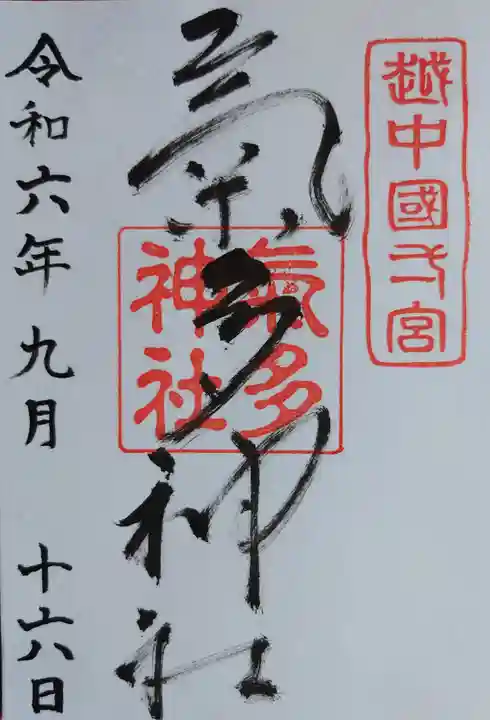 越中國一宮
氣多神社
氣多神社
令和六年九月 十六日